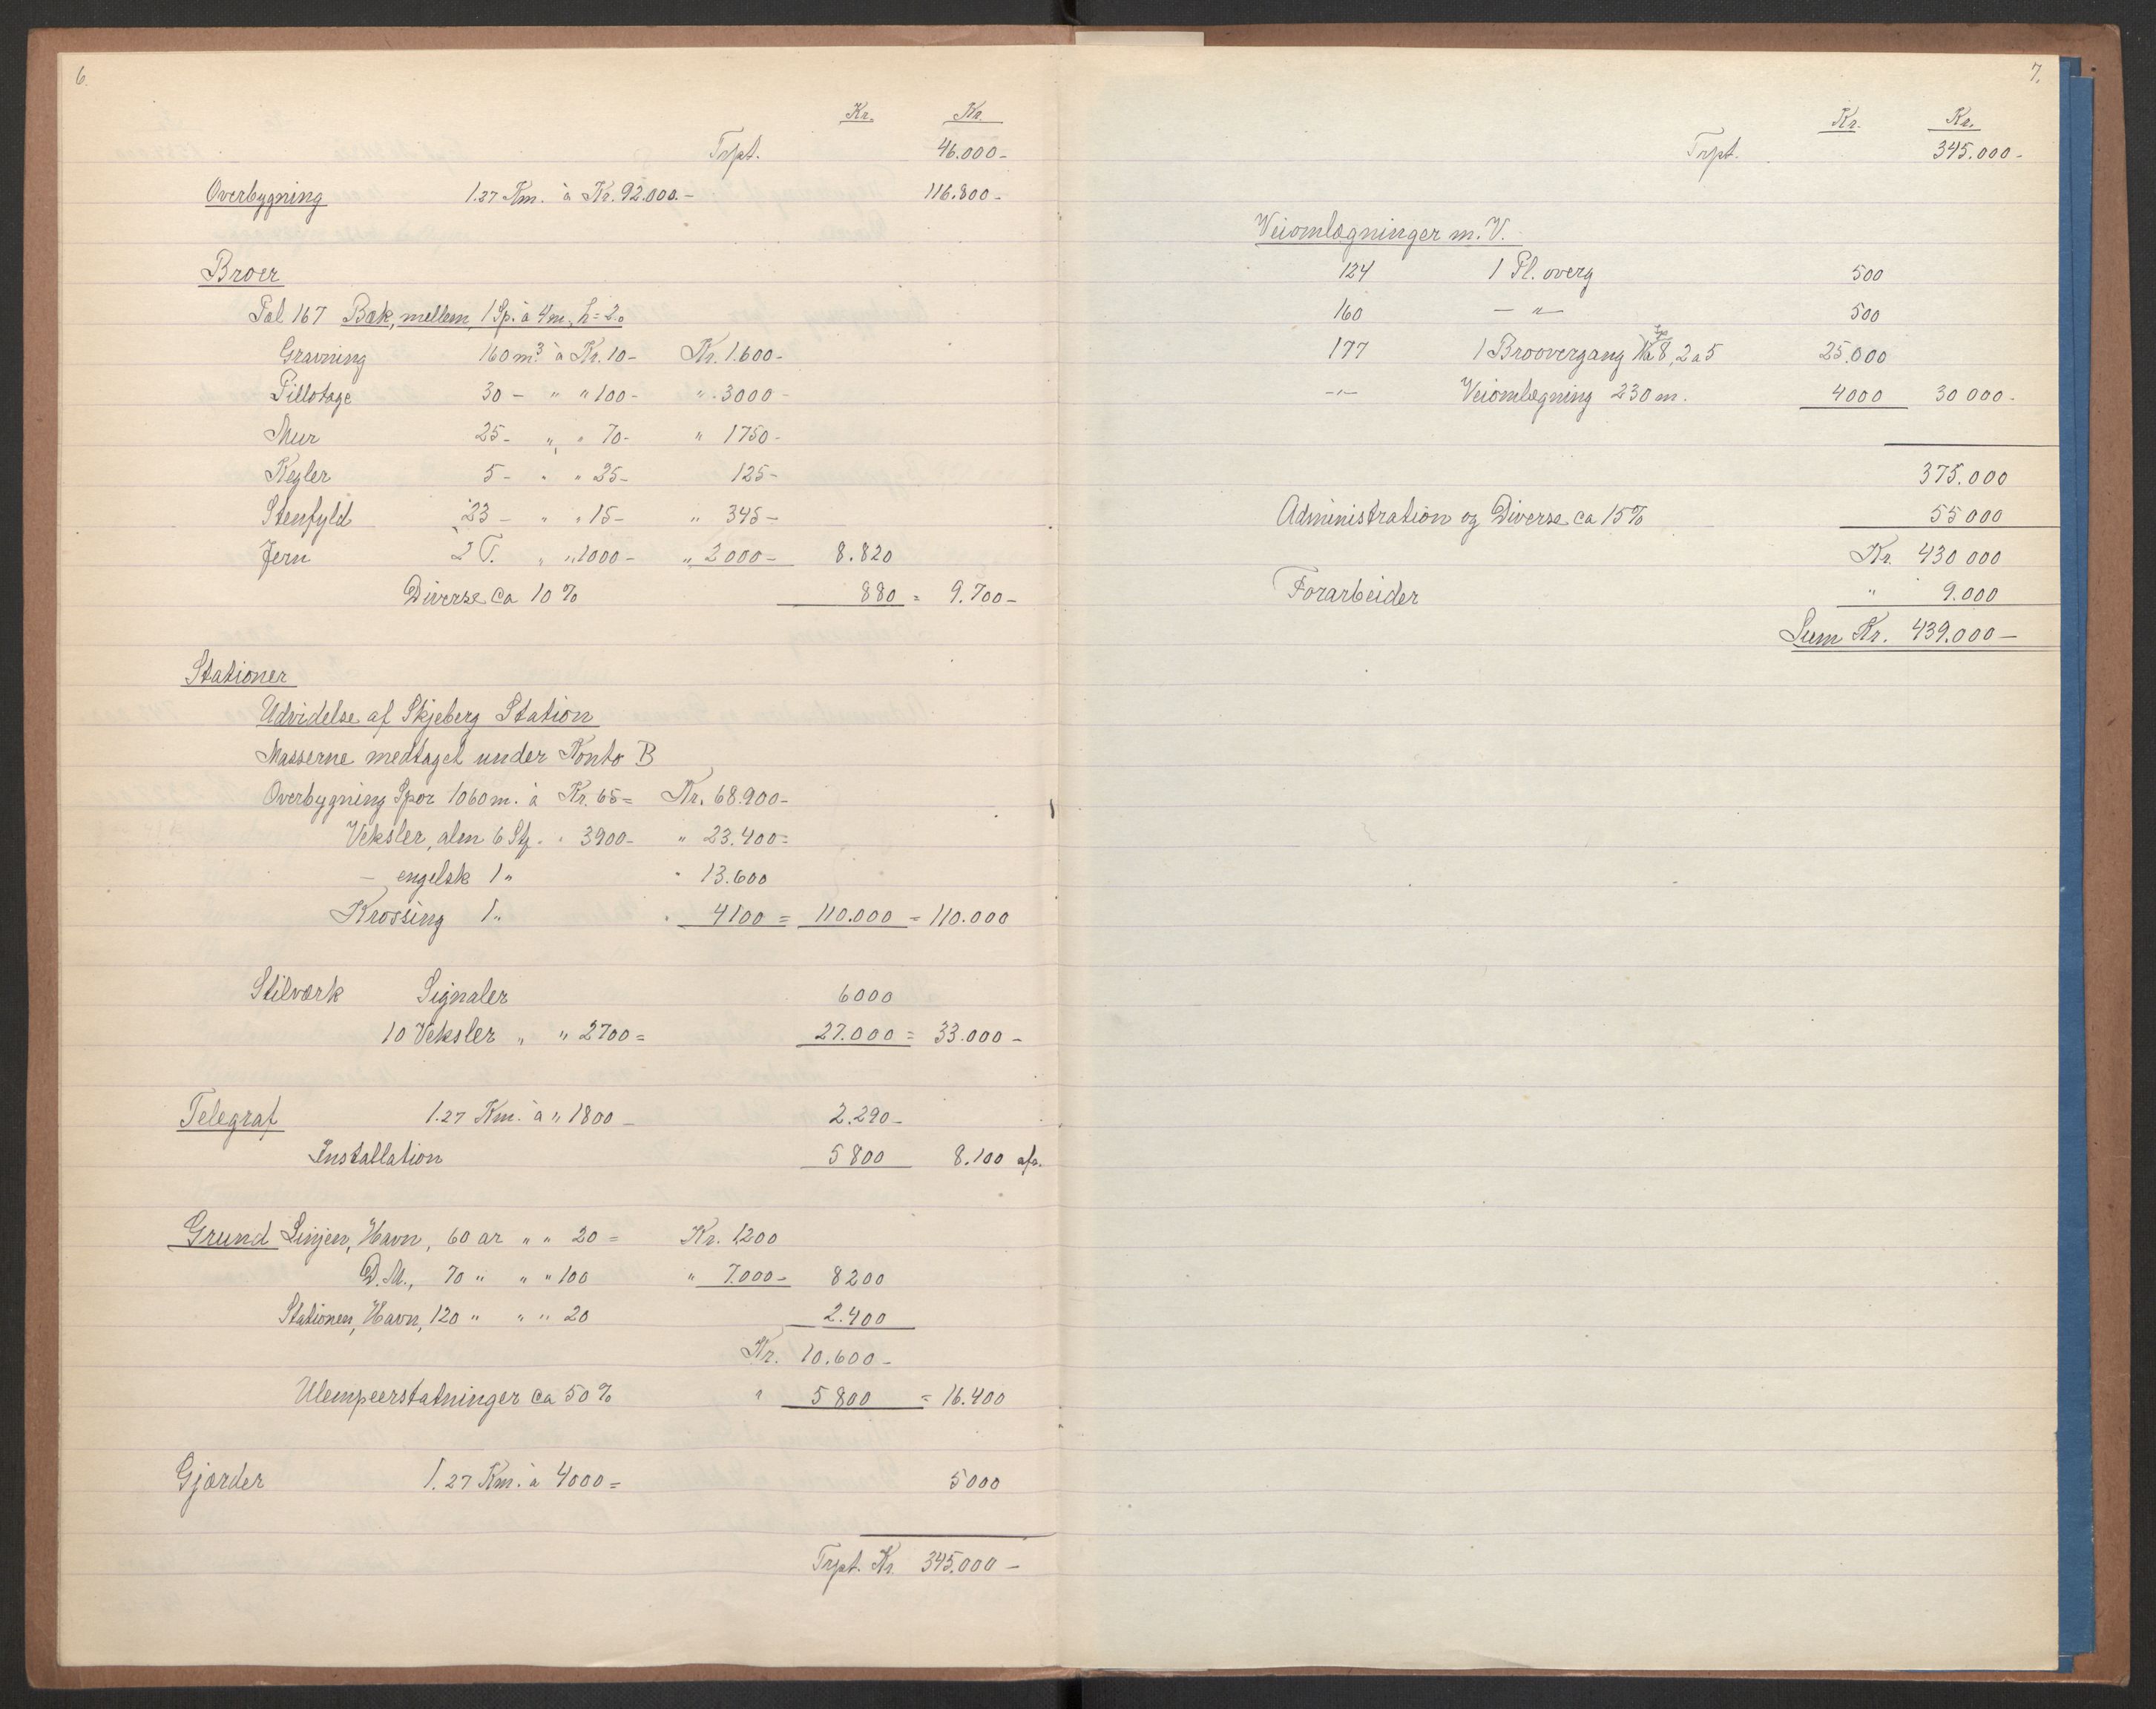 6.
Kr. Kr.
Trpt. 46.000-
Overbygning 1.27 Km. à Kr. 92.000.- 116.800-
Broer
Pæl 167 Bæk, mellem, 1 Sp. à 4m, h=2.0
Gravning 160 m³ à Kr. 10- Kr. 1.600-
Pillotage 30 - " " 100- " 3000-
Mur 25- " " 70- " 1750-
Kegler 5- " " 25- 125-
Stenfyld 23 - " " 15- " 345-
Jern 2 T. " " 1000- " 2000- 8.820
Diverse ca 10 % 880 = 9.700-
Stationer
Udvidelse af Skjeberg Station
Masserne medtaget under Konto B
Overbygning Spor 1060 m. à Kr. 65= Kr. 68.900-
Veksler, alm 6 Stk. " 3900- " 23.400=
- engelsk 1 " " 13.600
Krossing 1 " " 4100 = 110.000 = 110.000
Stilværk Signaler 6000
10 Veksler " " 2700= 27.000 = 33.000-
Telegraf 1.27 Km. à " 1800- 2.290-
Installation 5800 8.100 afr.
Grund Linjen, Havn, 60 ar " " 20 = Kr. 1200
D.M., 70 " " " 100 " 7.000- 8200
Stationen, Havn, 120 " " " 20 2.400
Kr. 10.600-
Ulempeerstatninger ca 50 % " 5800 = 16.400
Gjærder 1.27 Km. à 4000= 5000
Trpt. Kr. 345.000-
7.
Kr. Kr.
Trpt. 345.000-
Veiomlægninger m. V.
124 1 Pl. overg 500
160 - " - 500
177 1 Broovergang 8, 2 a 5 25.000
-"- Veiomlægning 230 m. 4000 30 000-
375.000
Administration og Diverse ca 15% 55 000
Kr. 430 000
Forarbeider " 9.000
Sum Kr. 439.000-